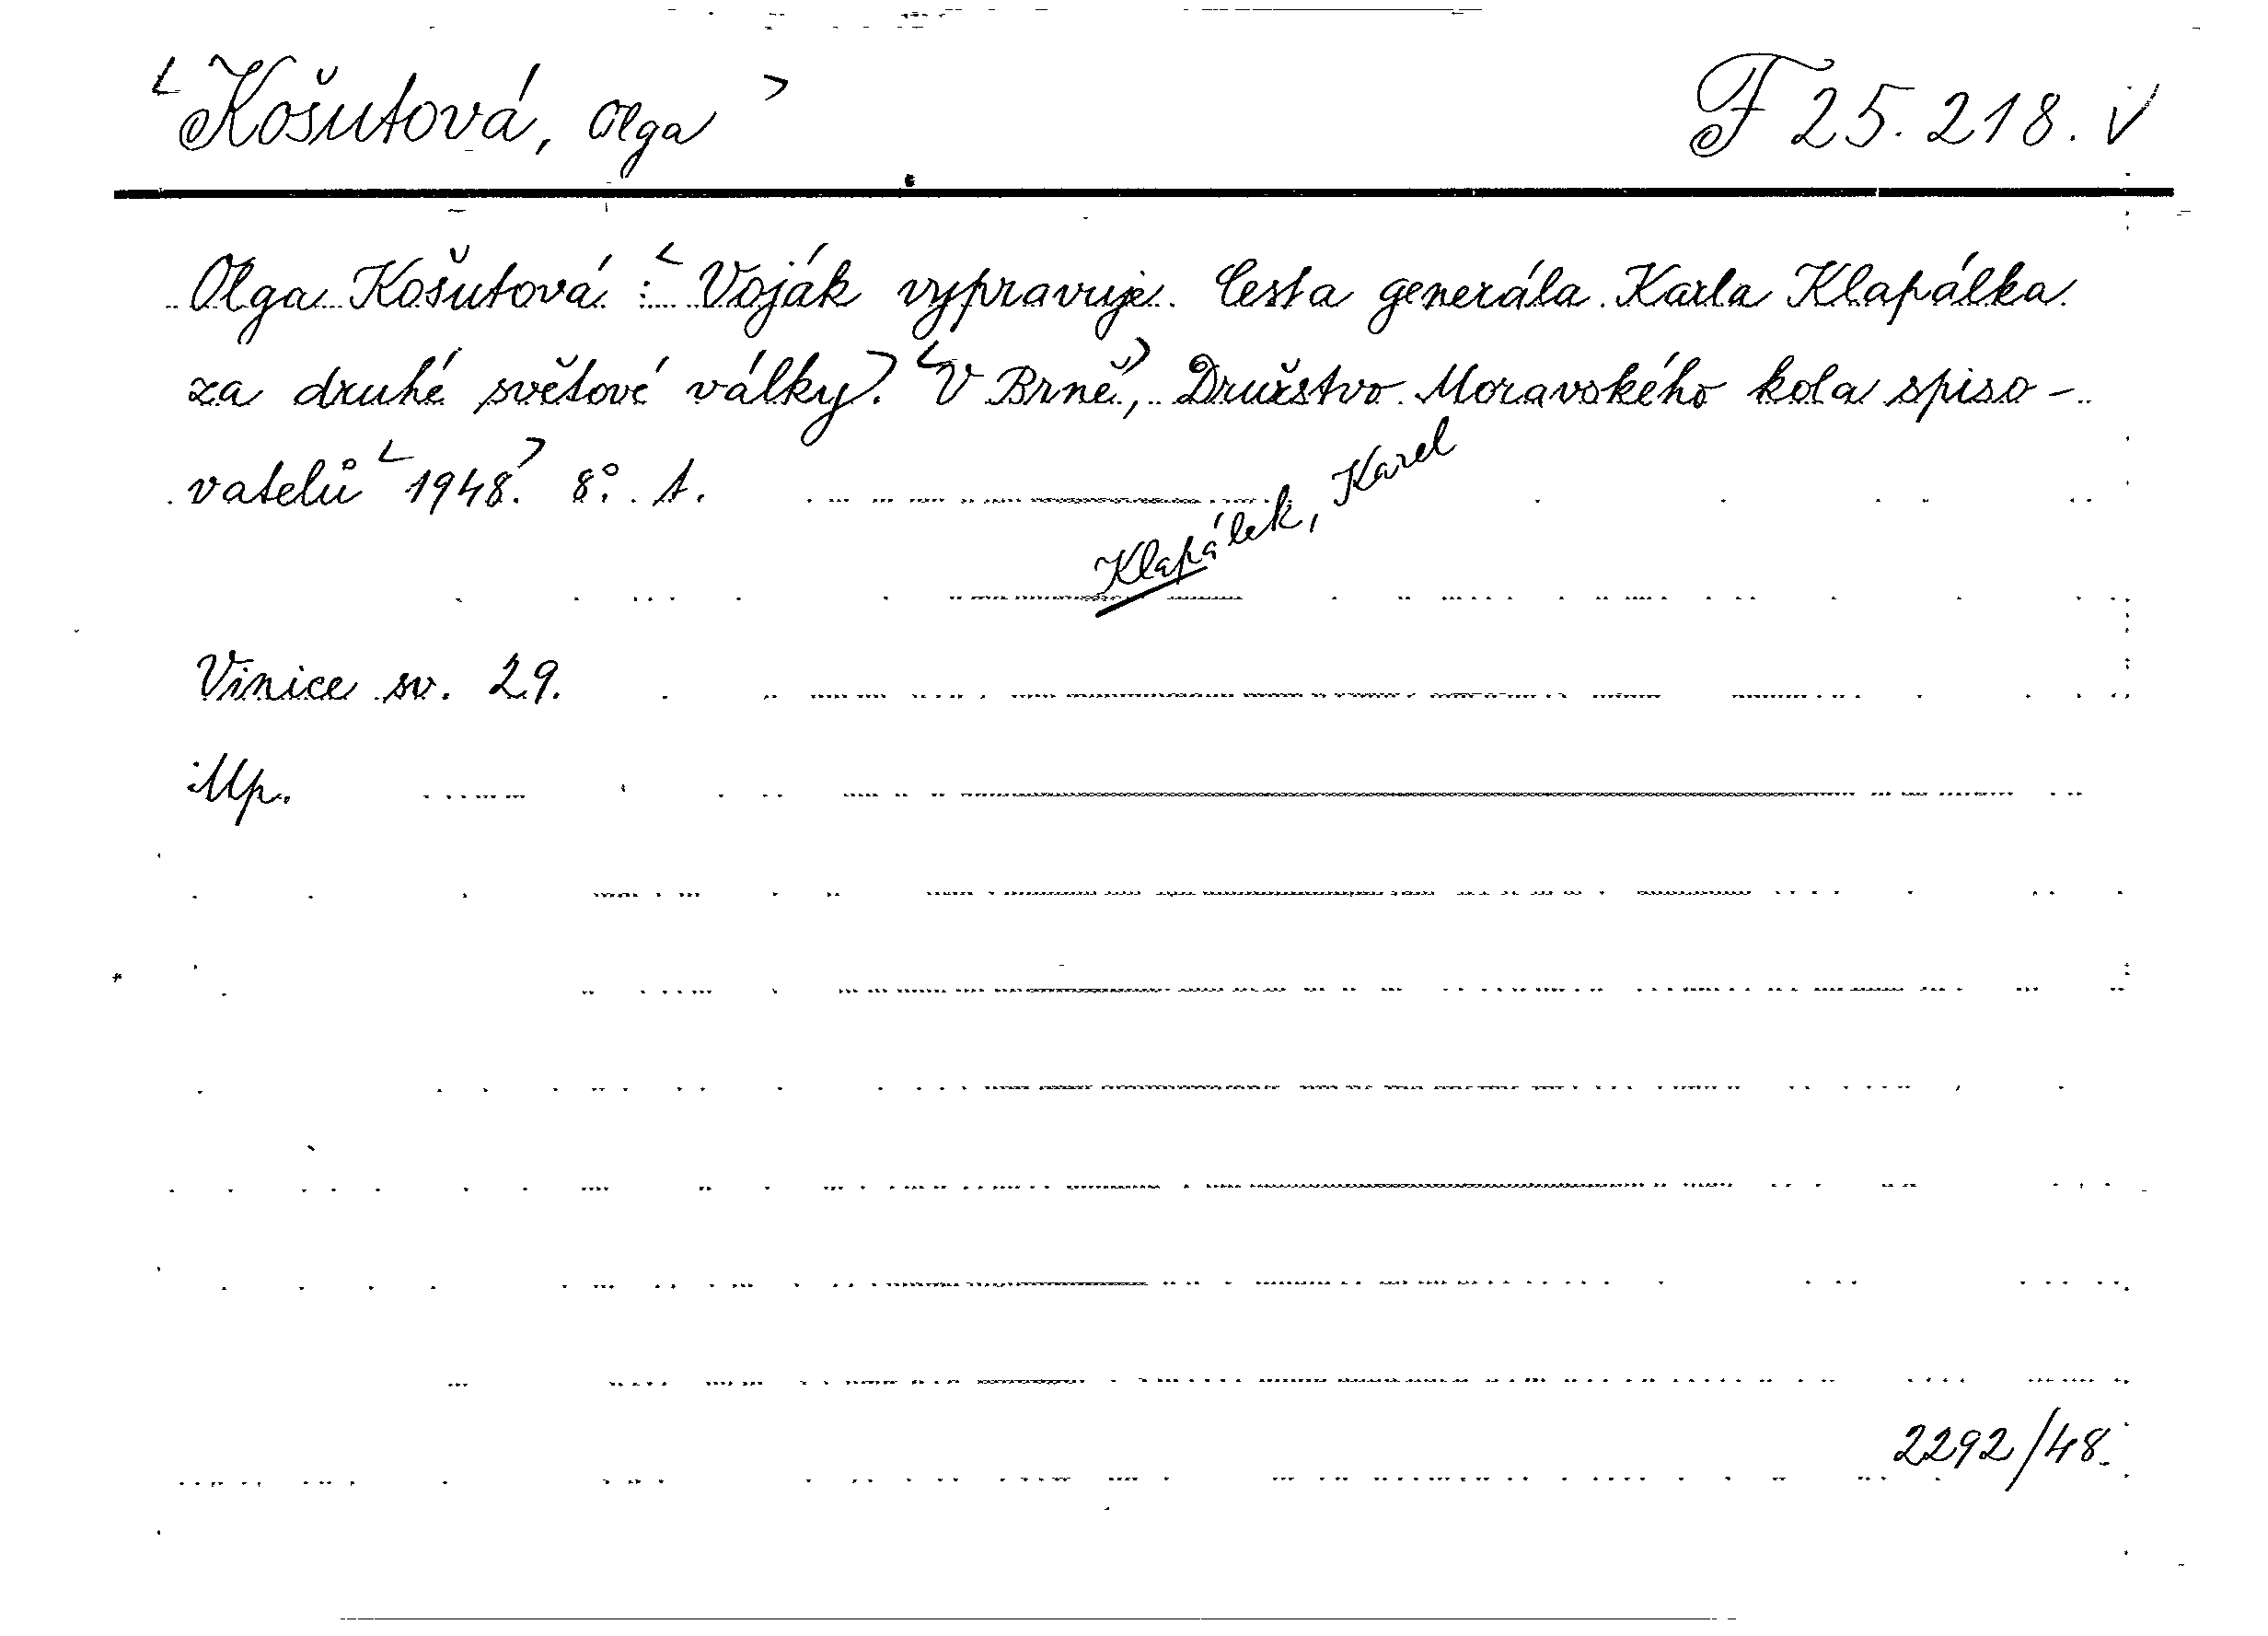 <Košutová, Olga>
F 25.218. V
Olga Košutová : <Voják vypravuje. Cesta generála Karla Klapálka
za druhé světové války>. <V Brně>, Družstvo Moravského kola spiso-
vatelů <1948>. 8°. 1.
Klapálek, Karel
Vinice sv. 29.
Mp.
2292/48.